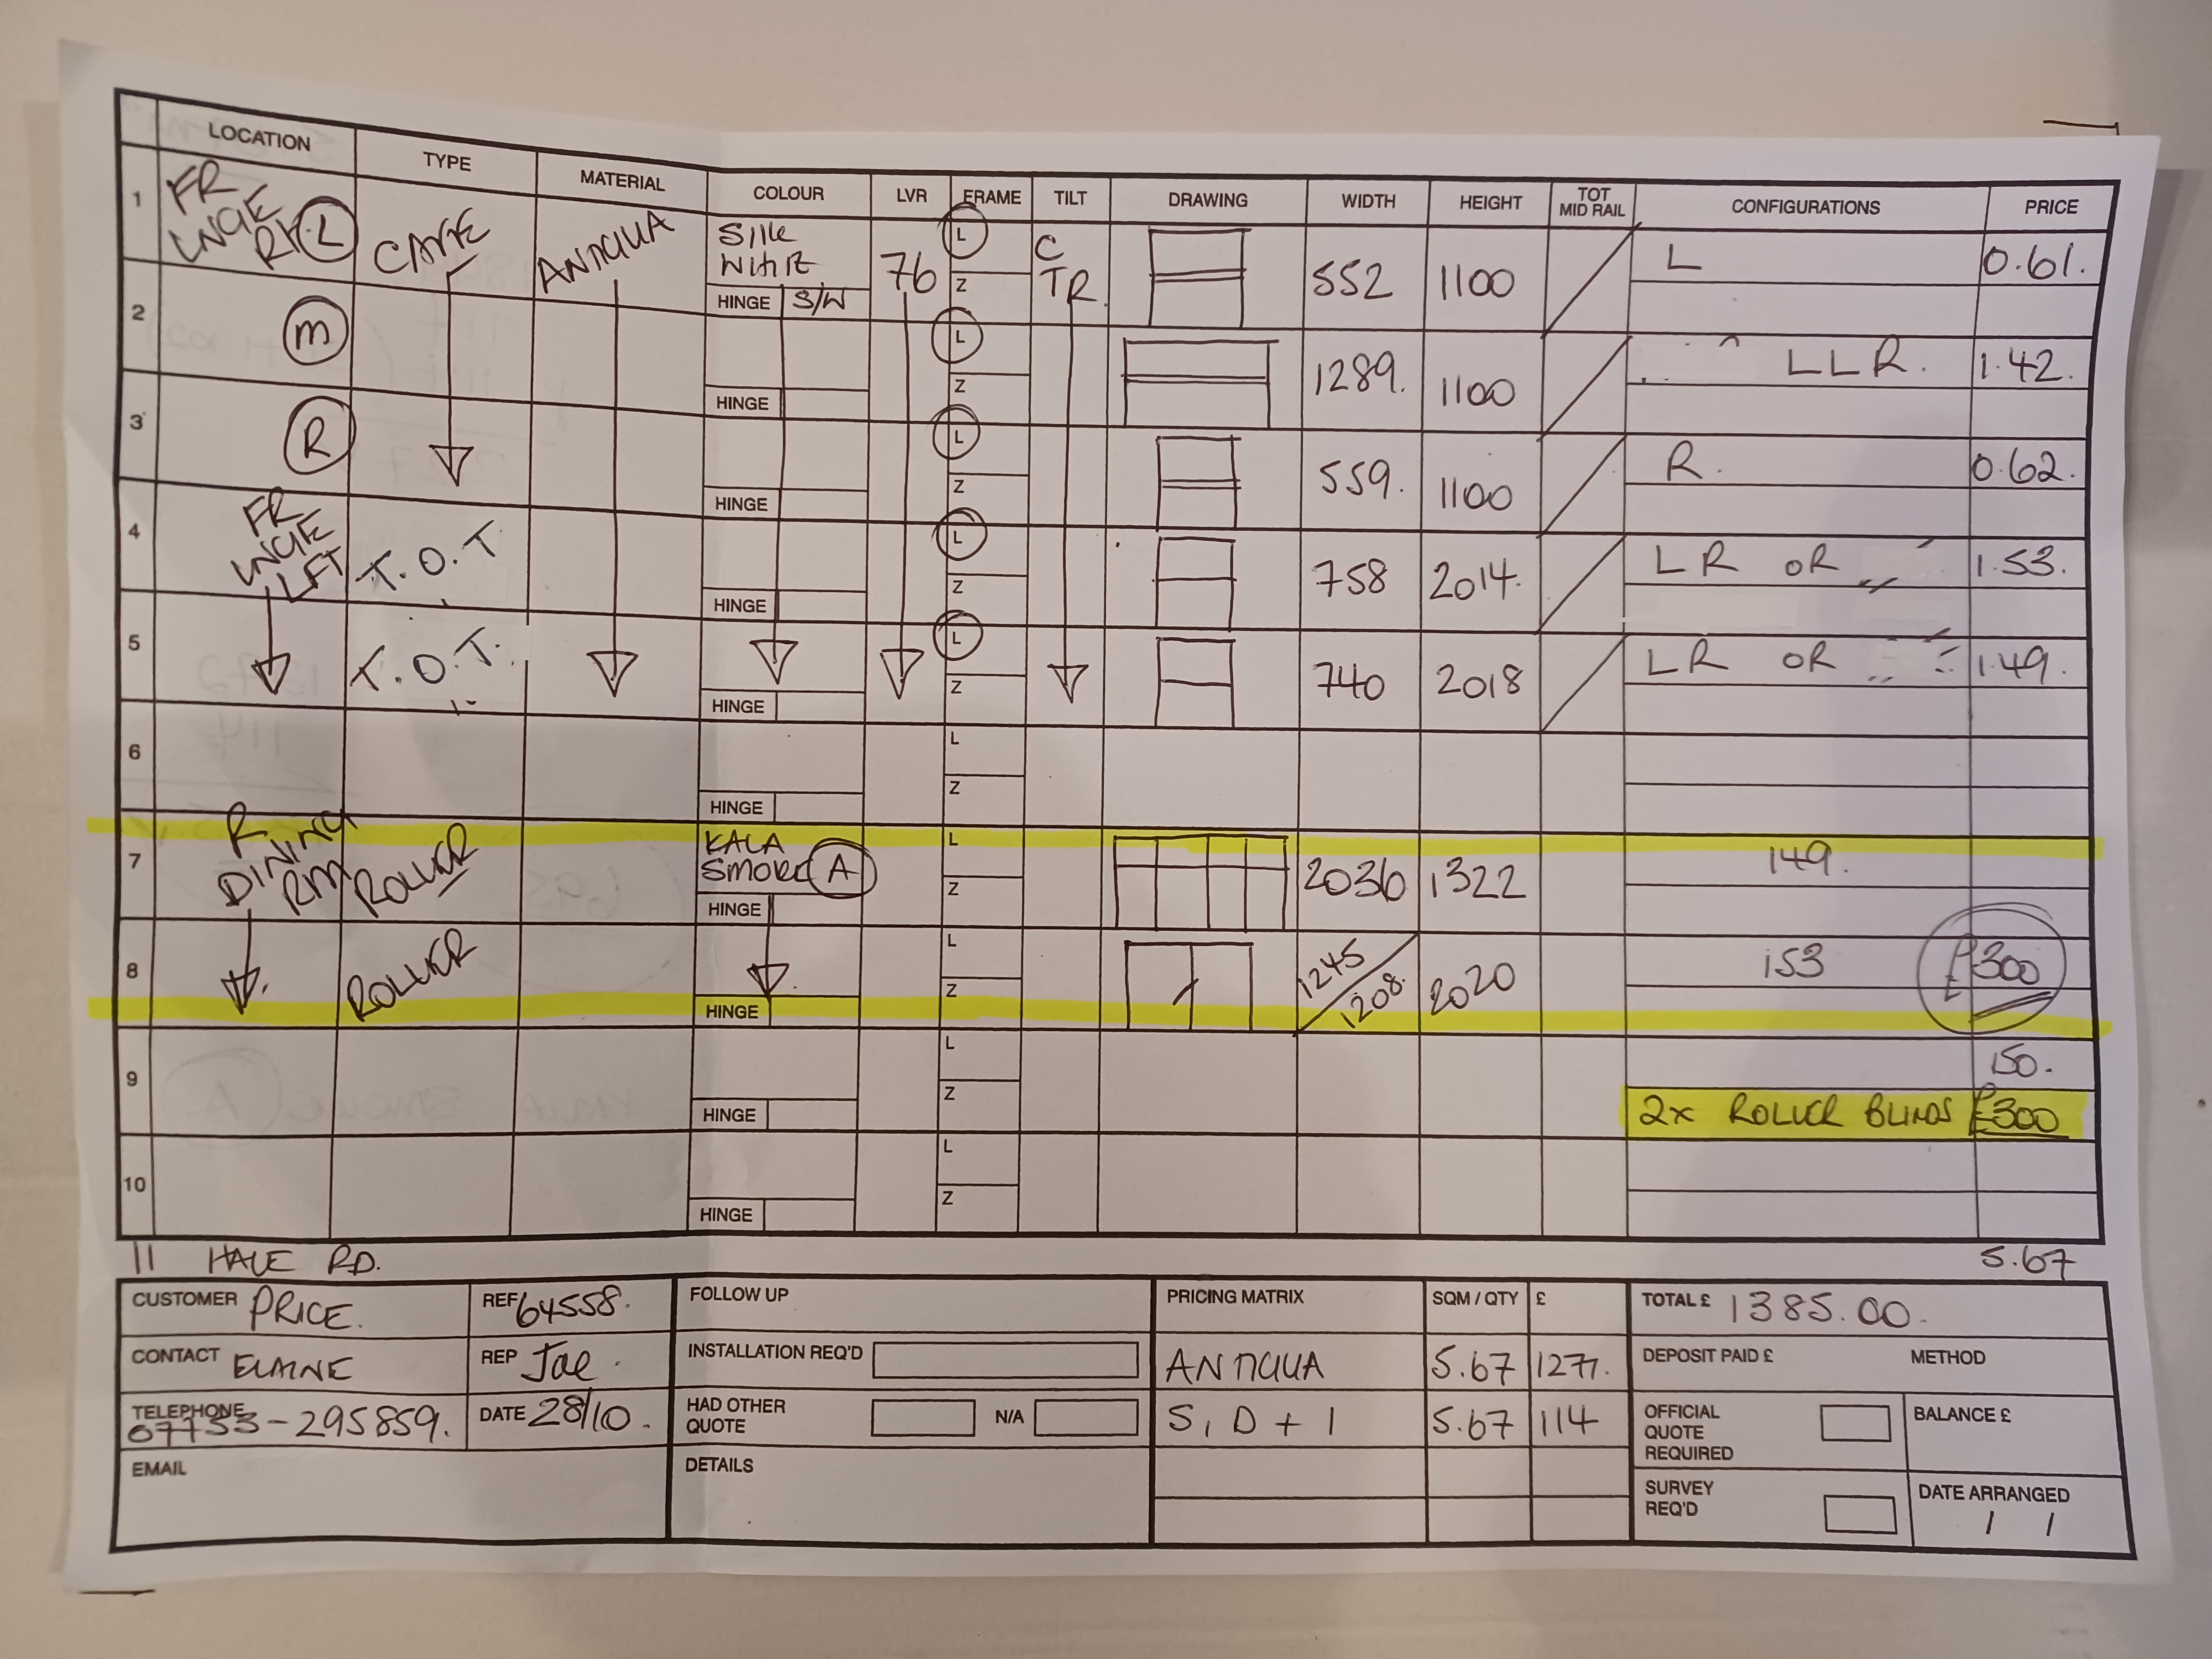 LOCATION TYPE MATERIAL COLOUR LVR FRAME TILT DRAWING WIDTH HEIGHT TOT MID RAIL CONFIGURATIONS PRICE
1 FR LNGE R L CAFE ANTIGUA SILK WHITE HINGE S/W 76 L Z C TR. 552 1100 L 0.61.
2 M HINGE L Z 1289. 1100 LLR. 1.42.
3 R HINGE L Z 559. 1100 R. 0.62.
4 FR LNGE LFT T.O.T HINGE L Z 758 2014. LR OR 1.53.
5 T.O.T. HINGE L Z 740 2018 LR OR 1.49.
6 HINGE L Z
7 R DINING RM ROLLER KALA SMOKE A HINGE L Z 2036 1322 149.
8 ROLLER HINGE L Z 1245 / 1208. 2020 153 £300
9 HINGE L Z 150.
2x ROLLER BLINDS £300
10 HINGE L Z
11 HALE RD. 5.67
CUSTOMER PRICE. REF 64558. FOLLOW UP PRICING MATRIX SQM / QTY £ TOTAL £ 1385.00.
CONTACT ELAINE REP Joe. INSTALLATION REQ'D ANTIGUA 5.67 1277. DEPOSIT PAID £ METHOD
TELEPHONE 07753-295859. DATE 28/10. HAD OTHER QUOTE N/A S, D + I 5.67 114 OFFICIAL QUOTE REQUIRED BALANCE £
EMAIL DETAILS SURVEY REQ'D DATE ARRANGED / /